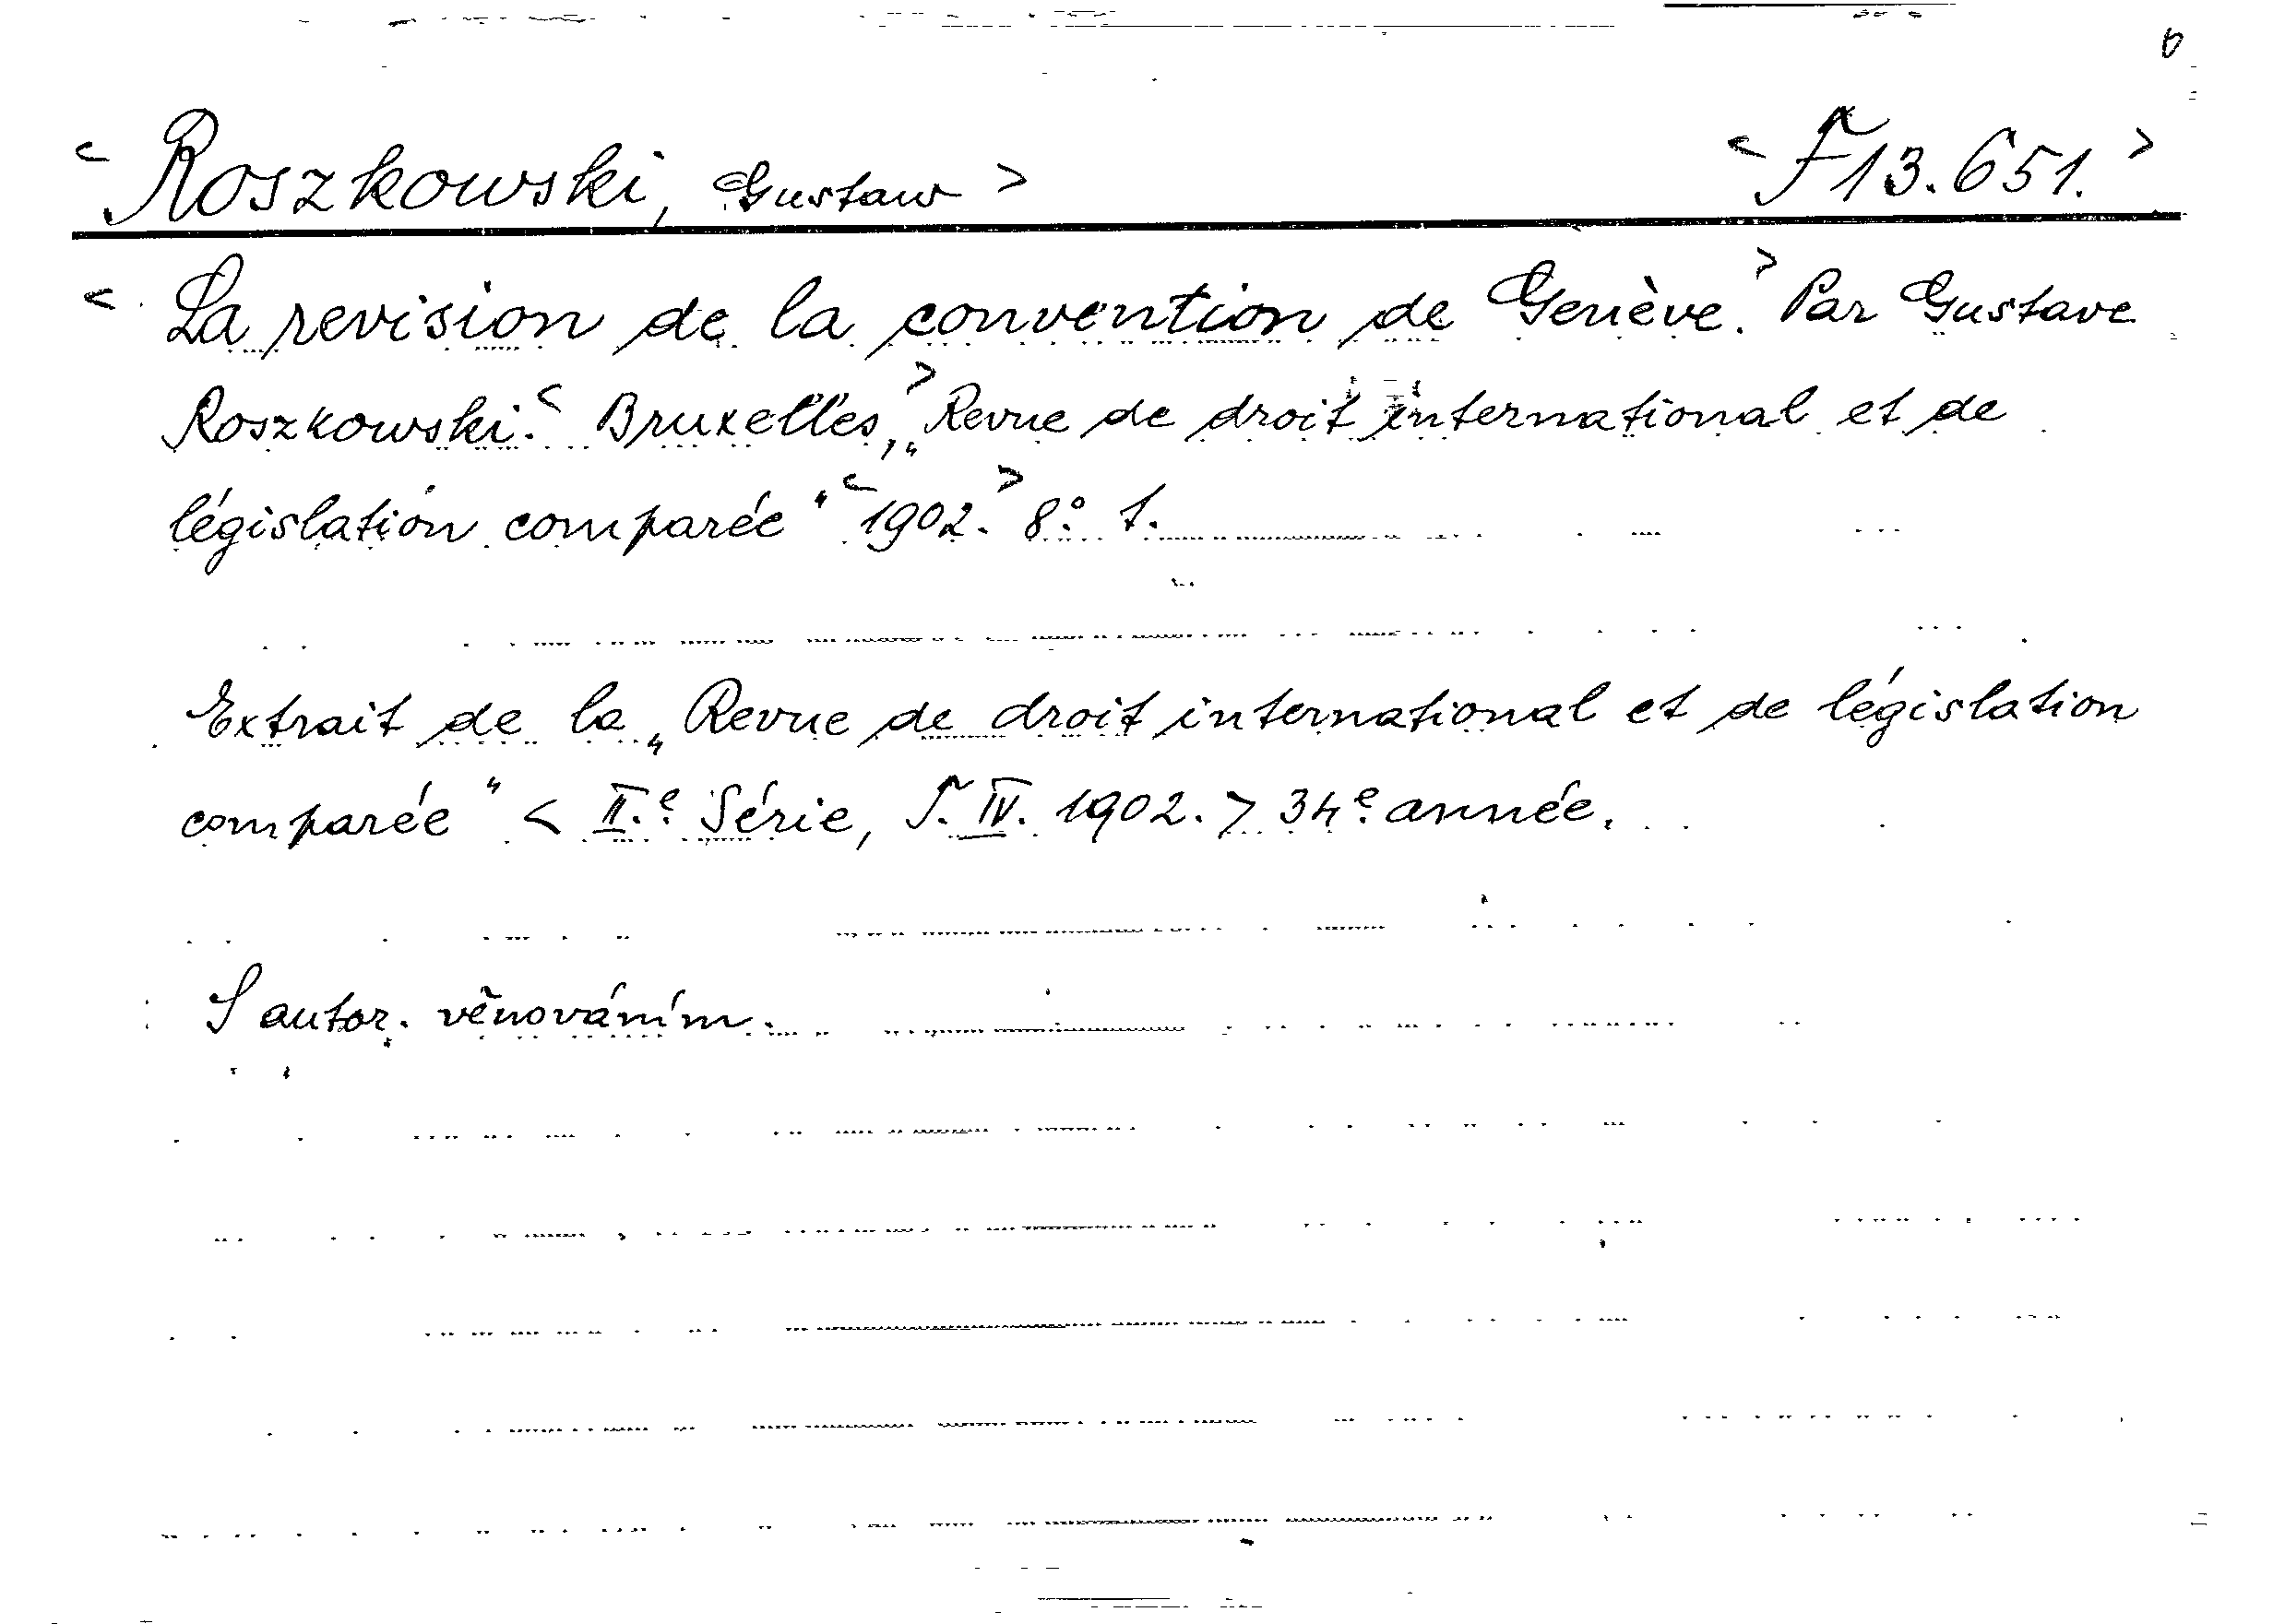 6
< Roszkowski, Gustaw > < F 13.651. >
< La revision de la convention de Genève. > Par Gustave
Roszkowski. < Bruxelles, > „Revue de droit international et de
législation comparée“ < 1902. > 8°. 1.
Extrait de la „Revue de droit international et de législation
comparée“ < II.e Série, T. IV. 1902. > 34e. année.
S autor. věnováním.